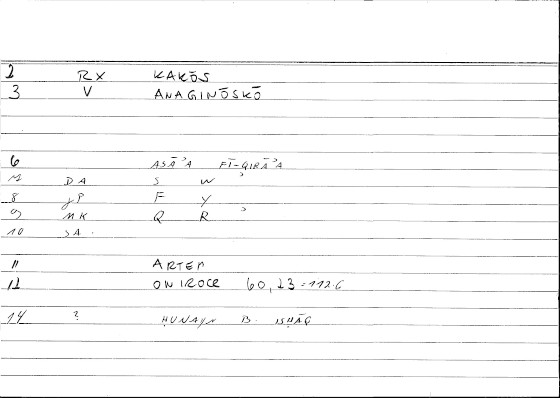 2 RX KAKŌS
3 V ANAGINŌSKŌ
6 ASĀʾA FĪ-QIRĀʾA
7 DA S W ʾ
8 JP F Y
9 MK Q R ʾ
10 SA.
11 ARTEM
12 ONIROCR 60,23 = 112.6
14 ? ḤUNAYN B. ISḤĀQ